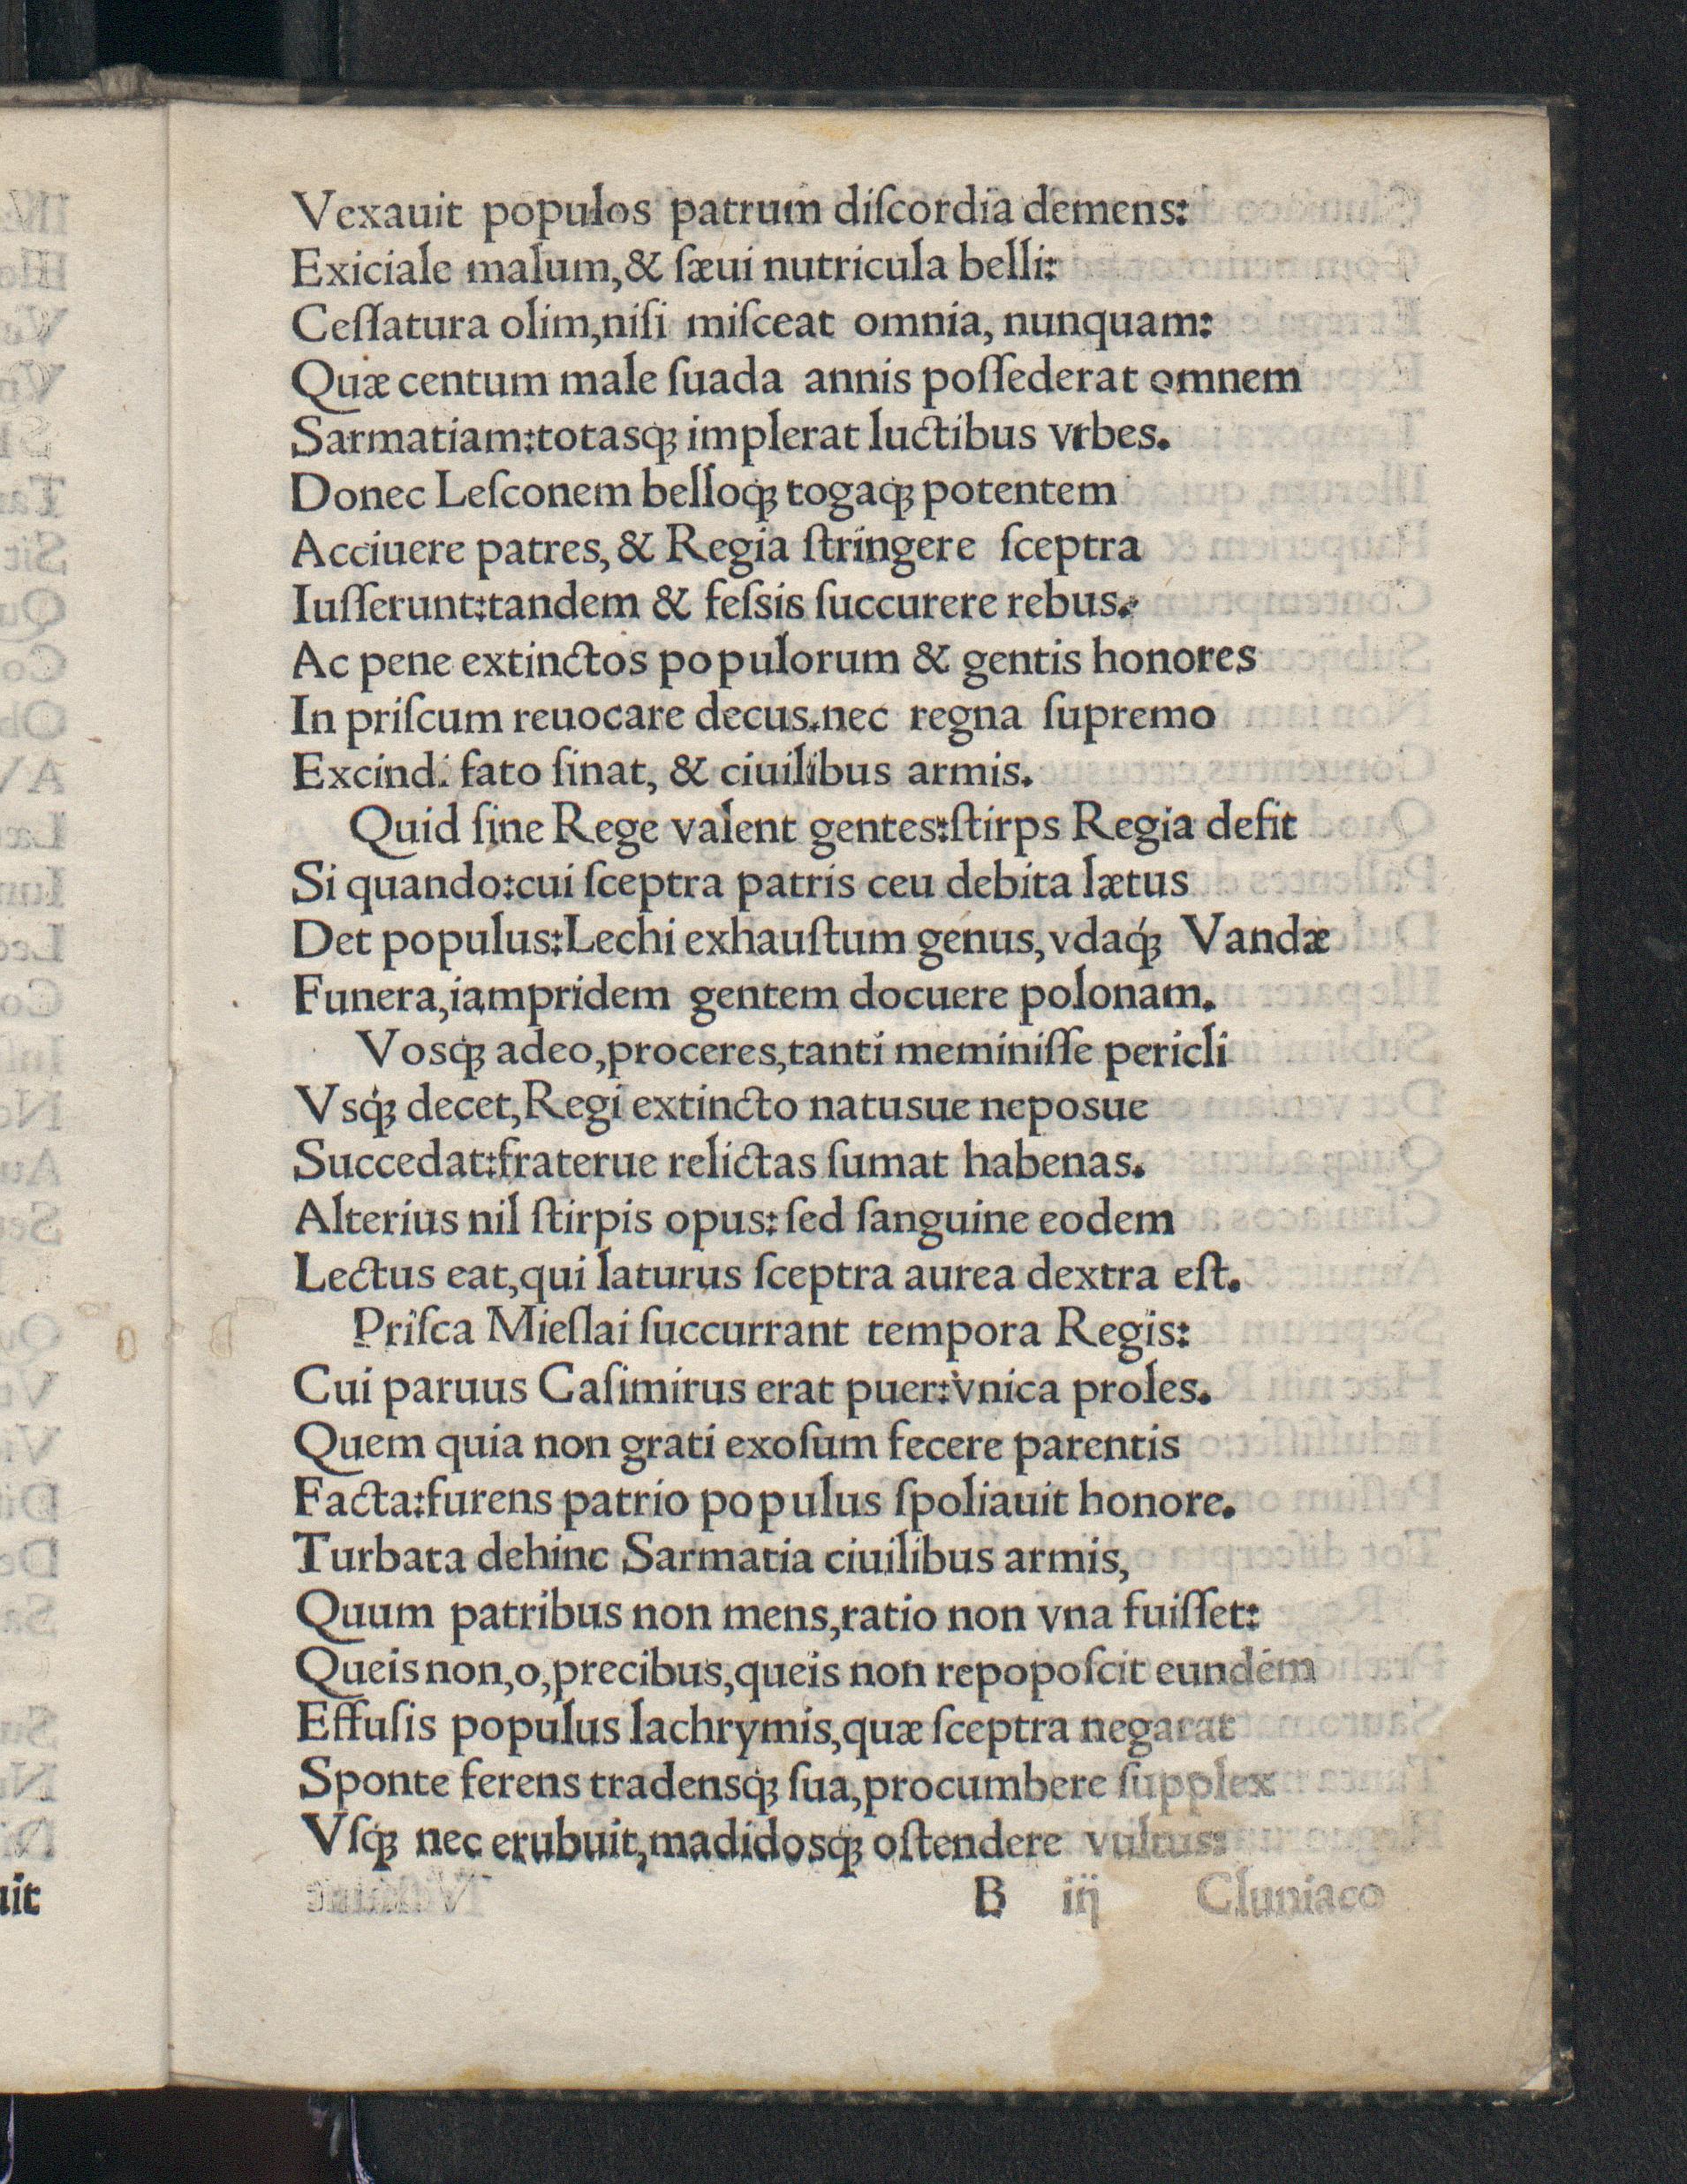 Vexauit populos patrum diſcordia demens:
Exiciale malum,& ſæui nutricula belli:
Ceſſatura olim,niſi miſceat omnia, nunquam:
Quæ centum male ſuada annis poſſederat omnem
Sarmatiam:totasqꝫ implerat luctibus vrbes.
Donec Leſconem belloqꝫ togaqꝫ potentem
Acciuere patres, & Regia ſtringere ſceptra
Iuſſerunt:tandem & feſsis ſuccurere rebus.
Ac pene extinctos populorum & gentis honores
In priſcum reuocare decus.nec regna ſupremo
Excindi fato ſinat, & ciuilibus armis.
Quid ſine Rege valent gentes:ſtirps Regia defit
Si quando:cui ſceptra patris ceu debita lætus
Det populus:Lechi exhauſtum genus,vdaqꝫ́ Vandæ
Funera,iampridem gentem docuere polonam.
Vosqꝫ adeo,proceres,tanti meminiſſe pericli
Vsqꝫ́ decet,Regi extincto natusue neposue
Succedat:fraterue relictas ſumat habenas.
Alterius nil ſtirpis opus:ſed ſanguine eodem
Lectus eat,qui laturus ſceptra aurea dextra eſt.
Priſca Mieſlai ſuccurrant tempora Regis:
Cui paruus Caſimirus erat puer:vnica proles.
Quem quia non grati exoſum fecere parentis
Facta:furens patrio populus ſpoliauit honore.
Turbata dehinc Sarmatia ciuilibus armis,
Quum patribus non mens,ratio non vna fuiſſet:
Queis non,o,precibus,queis non repopoſcit eundem
Effuſis populus lachrymis,quæ ſceptra negarat
Sponte ferens tradensqꝫ ſua,procumbere ſupplex
Vſqꝫ nec erubuit,madidosqꝫ oſtendere vultus:
B iij Cluniaco